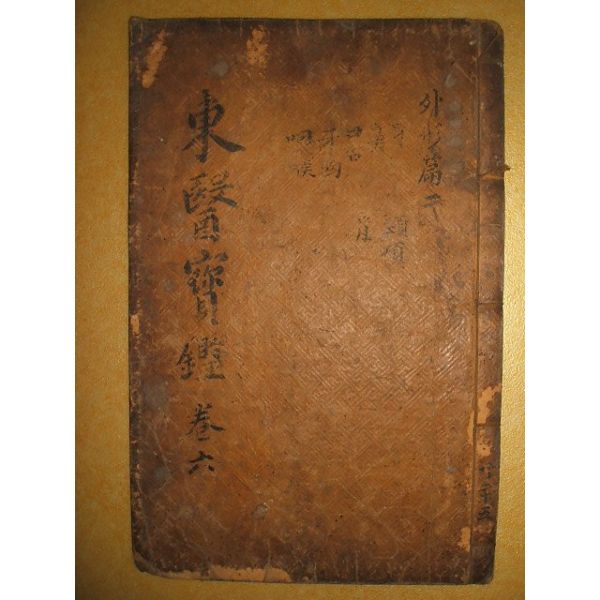 外形篇二
耳
鼻
口舌
牙齒
咽喉
頸項
背
東醫寶鑑 卷六